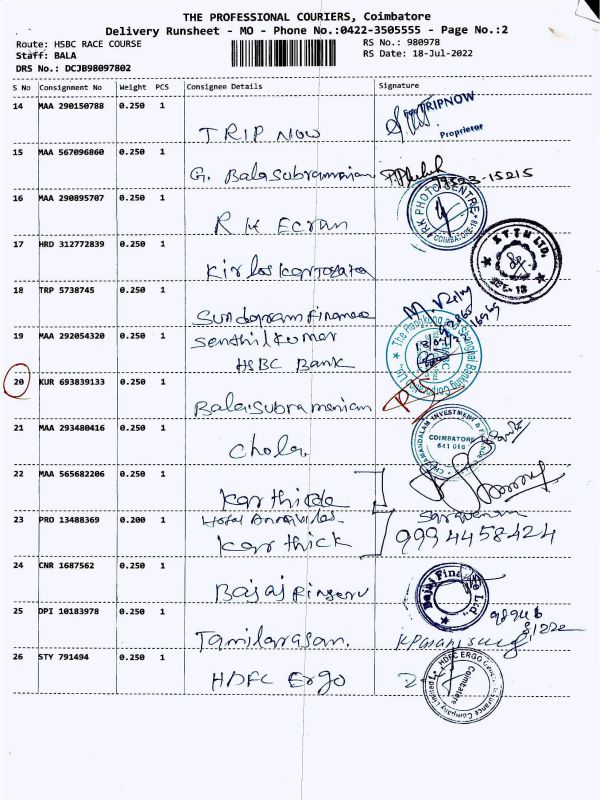 THE PROFESSIONAL COURIERS, Coimbatore
Delivery Runsheet - MO - Phone No.:0422-3505555 - Page No.:2
Route: HSBC RACE COURSE
RS No.: 980978
Staff: BALA
RS Date: 18-Jul-2022
DRS No.: DCJB98097802
S No Consignment No Weight PCS Consignee Details Signature
14 MAA 290150788 0.250 1
For TRIPNOW
Proprietor
TRIP NOW
15 MAA 567096860 0.250 1
G. Balasubramanian
16 MAA 290895707 0.250 1
RK PHOTO CENTRE
COIMBATORE-18
R K Ecran
17 HRD 312772839 0.250 1
K T T M LTD.
CBE-18
18 TRP 5738745 0.250 1
Sundaram Finance
19 MAA 292054320 0.250 1
Senthil Kumar
HSBC Bank
The Hongkong and Shanghai Banking Corporation Ltd.,
20 KUR 693839133 0.250 1
RTS
Balasubramanian
21 MAA 293480416 0.250 1
CHOLAMANDALAM INVESTMENT & FINANCE
COIMBATORE
641 018
Chola.
22 MAA 565682206 0.250 1
23 PRO 13488369 0.200 1
Hotel
Karthick
Saravanan
9994458424
24 CNR 1687562 0.250 1
Bajaj Finserv
Bajaj Finance Ltd.
25 DPI 10183978 0.250 1
Tamilarasan.
26 STY 791494 0.250 1
HDFC Ergo
HDFC ERGO General Insurance Company Limited
Coimbatore